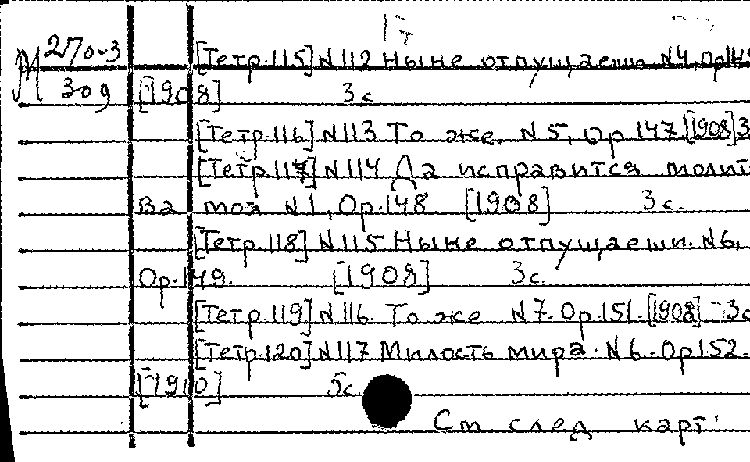 М 270-3
309
[Тетр.115] N112 Ныне отпущаеши N4, Ор.145
[1908] 3с
[Тетр.116] N113 То же. N5, Ор.147 [1908] 3
[Тетр.117] N114 Да исправится молит
ва моя N1, Ор.148 [1908] 3с.
[Тетр.118] N115 Ныне отпущаеши. N6,
Ор.149. [1908] 3с.
[Тетр.119] N116 То же N7. Ор.151. [1908] - 3с
[Тетр.120] N117 Милость мира. N6. Ор152.
[1910] 5с
См след карт.